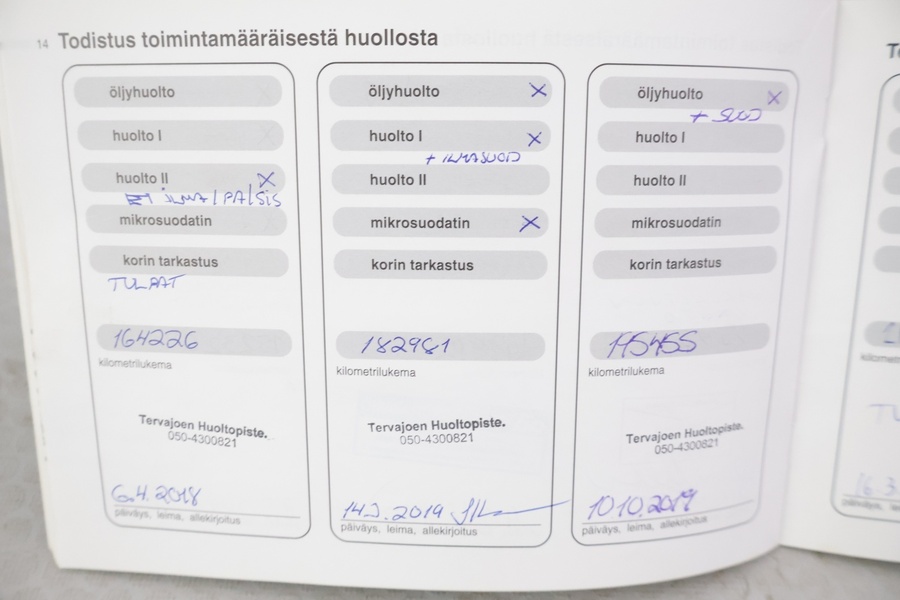 14 Todistus toimintamääräisestä huollosta
öljyhuolto
huolto I
huolto II X
ILMA/PA/SIS
mikrosuodatin
korin tarkastus
TULPAT
164226
kilometrilukema
Tervajoen Huoltopiste.
050-4300821
6.4.2018
päiväys, leima, allekirjoitus
öljyhuolto X
huolto I X
+ ILMASUOD
huolto II
mikrosuodatin X
korin tarkastus
182981
kilometrilukema
Tervajoen Huoltopiste.
050-4300821
2019
päiväys, leima, allekirjoitus
öljyhuolto X
+ SUOD
huolto I
huolto II
mikrosuodatin
korin tarkastus
kilometrilukema
Tervajoen Huoltopiste.
050-4300821
10.10.2019
päiväys, leima, allekirjoitus